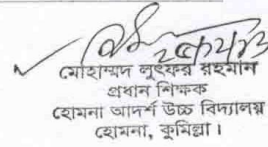 মোহাম্মদ লুৎফর রহমান
প্রধান শিক্ষক
হোমনা আদর্শ উচ্চ বিদ্যালয়
হোমনা, কুমিল্লা।